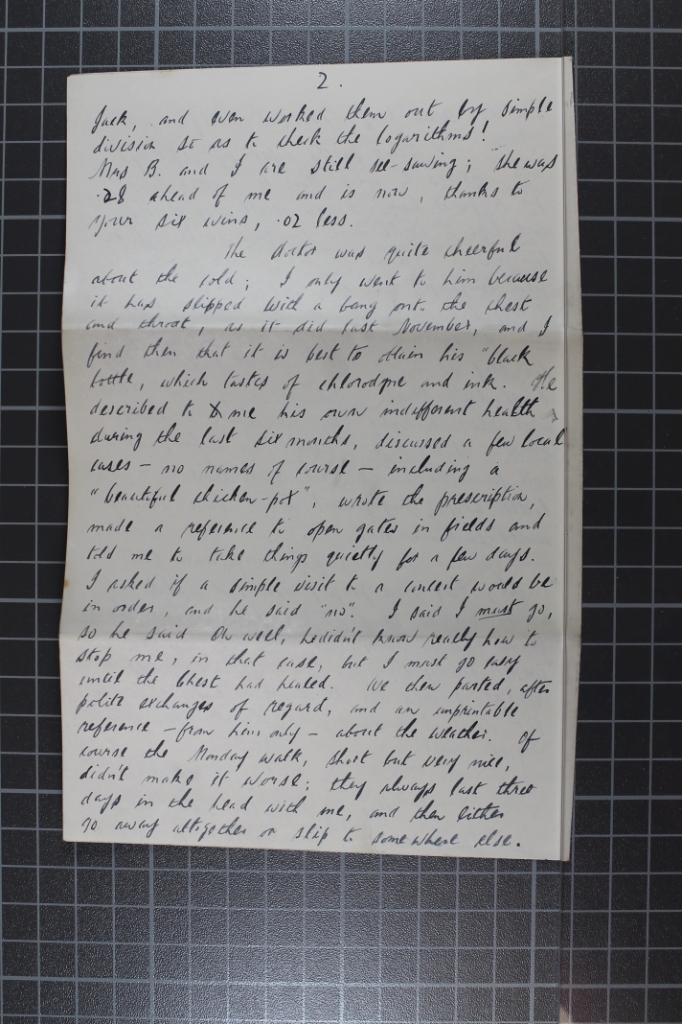 2.
Jack, and even worked them out by simple
division so as to check the logarithms!
Mrs B. and I are still see-sawing; she was
.28 ahead of me and is now, thanks to
your six wins, .02 less.
The doctor was quite cheerful
about the cold; I only went to him because
it has slipped with a bang onto the chest
and throat, as it did last November, and I
find then that it is best to obtain his "black
bottle, which tastes of chlorodyne and ink. He
described to me his own indifferent health
during the last six months, discussed a few local
cases - no names of course - including a
"beautiful chicken-pox", wrote the prescription,
made a reference to open gates in fields and
told me to take things quietly for a few days.
I asked if a simple visit to a concert would be
in order, and he said "no". I said I must go,
so he said Oh well, he didn't know really how to
stop me, in that case, but I must go easy
until the Chest had healed. We then parted, after
polite exchanges of regard, and an unprintable
reference - from him only - about the weather. Of
course the Monday walk, short but very nice,
didn't make it worse; they always last three
days in the head with me, and then either
go away altogether or slip to somewhere else.